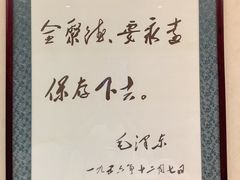 全聚德,要永远
保存下去。
毛泽东
一九五六年十二月七日